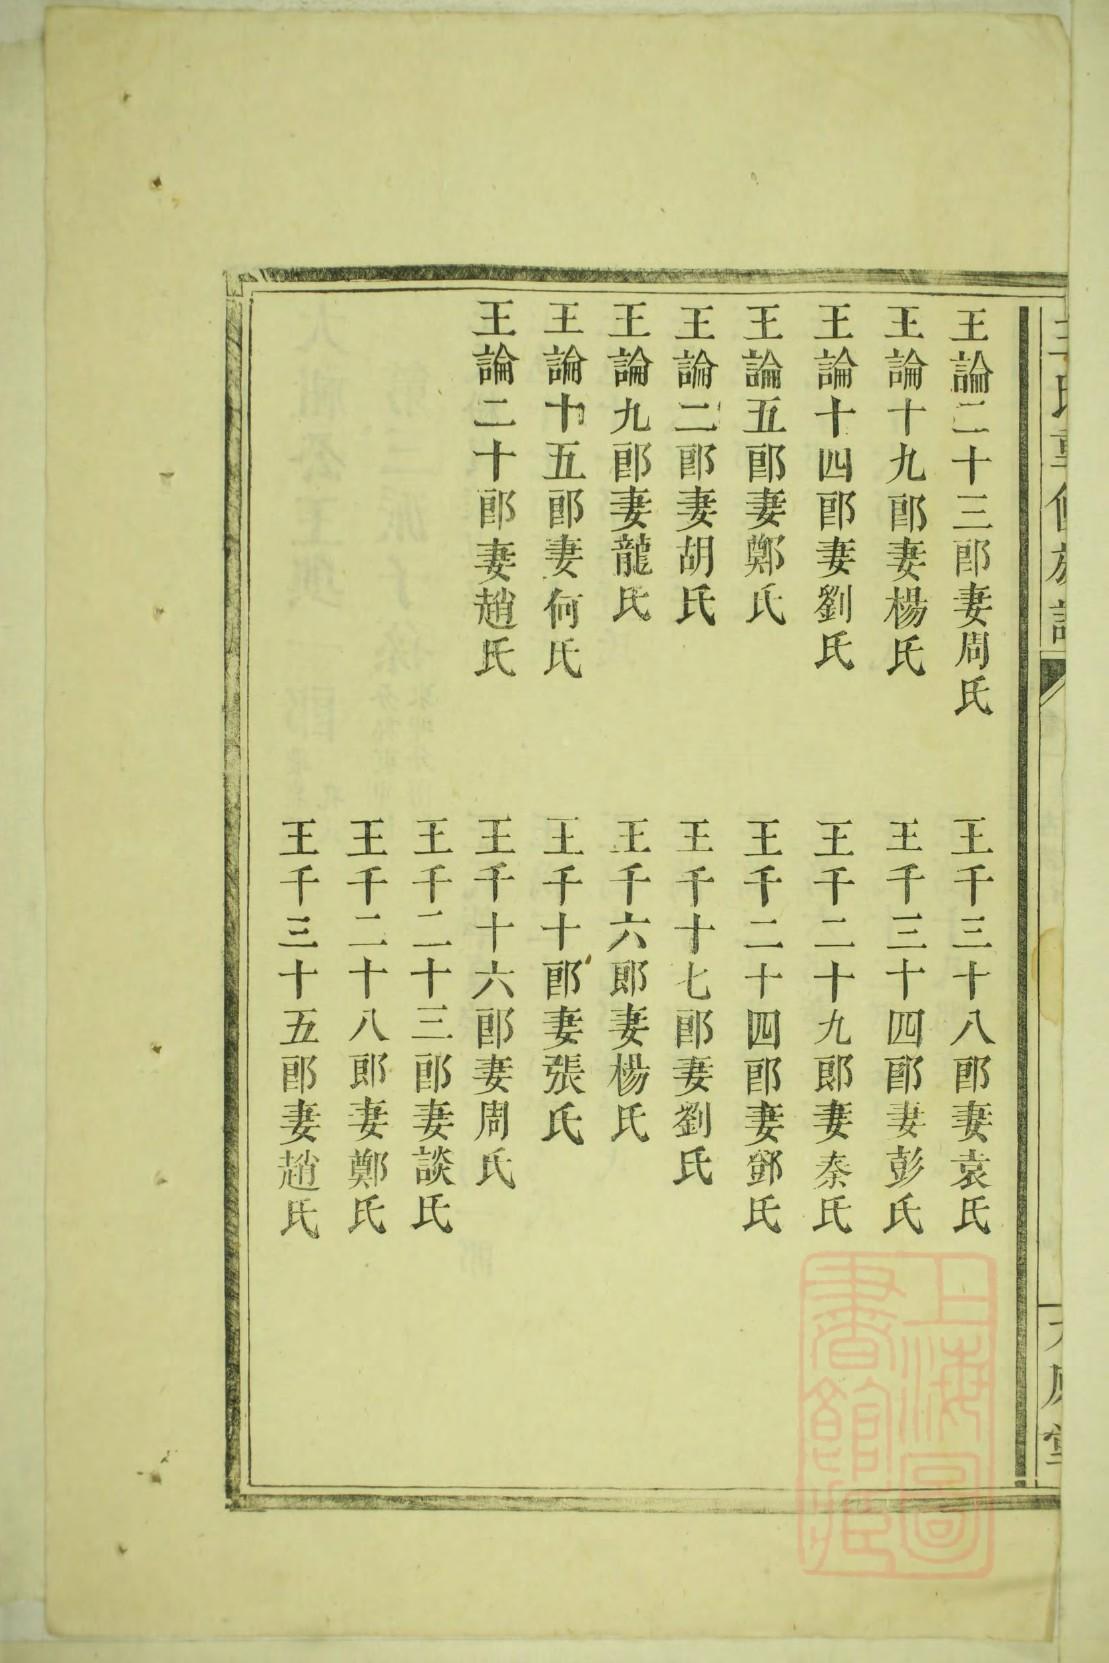 王氏重修族譜
王論二十三郎妻周氏
王論十九郎妻楊氏
王論十四郎妻劉氏
王論五郎妻鄭氏
王論二郎妻胡氏
王論九郎妻龍氏
王論十五郎妻何氏
王論二十郎妻趙氏
王千三十八郎妻袁氏
王千三十四郎妻彭氏
王千二十九郎妻秦氏
王千二十四郎妻鄧氏
王千十七郎妻劉氏
王千六郎妻楊氏
王千十郎妻張氏
王千十六郎妻周氏
王千二十三郎妻談氏
王千二十八郎妻鄭氏
王千三十五郎妻趙氏
上海圖書館藏